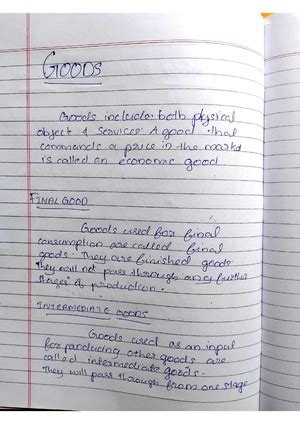 GOODS
Goods include both physical
object & services. A good that
commands a price in the market
is called an economic good.
FINAL GOOD
Goods used for final
consumption are called final
goods. They are finished goods
They will not pass through any further
stages of production.
INTERMEDIATE GOODS
Goods used as an input
for producing other goods are
called intermediate goods.
They will pass through from one stage